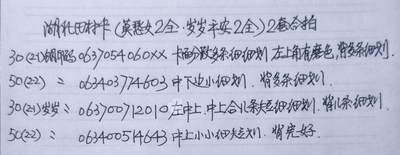 湖北田村卡(莫愁女2全·岁岁平安2全)2套合拍
30(2-1)    0637054060XX 卡面分散多条细细划 左上角有磨色,背多条细划.
50(2-2)    063403774603 中下边小细划. 背多条划.
30(2-1)岁岁: 063700712010 左中上,中上合几条短细细划. 背几条划.
50(2-2)    : 063400514643 中上小小细短划. 背完好.